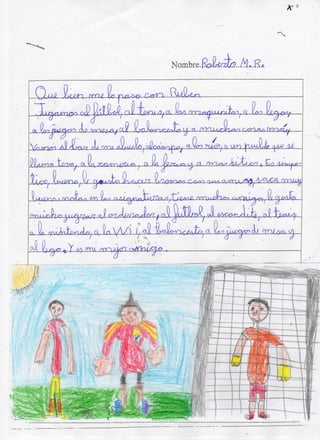 Nombre. Roberto M. R.
Que bien me lo paso con Ruben
Jugamos al fútbol, al tenis, a las maquinitas, a los legos
a los juegos de mesa, al baloncesto y a muchas cosas más
Vamos al bar de mi abuelo, al campo, a los ríos, a un pueblo que se
llama tera, a la a la feria y a Es simpa-
tico, bueno, le gusta hacer bromas con sus amigos, saca muy
buenas notas en las asignaturas, tiene muchos amigos, le gusta
mucho jugar al ordenador, al fútbol, al escondite, al tenis
a la nintendo, a la Wii, al baloncesto, a los juegos de mesa y
al lego. Y es mi mejor amigo.